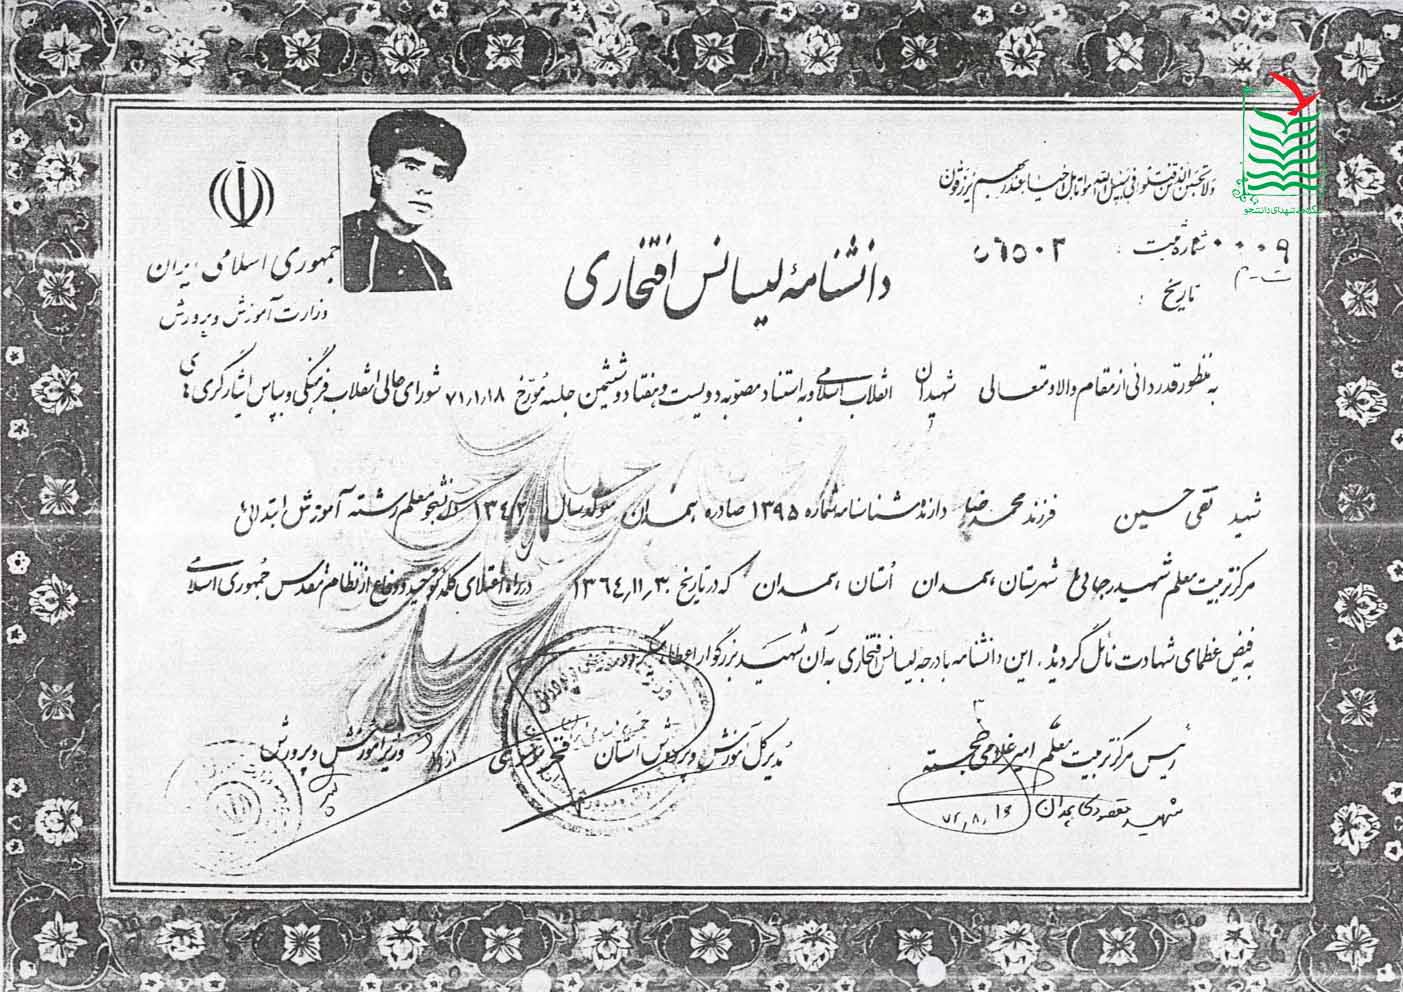 ولا تحسبن الذین قتلوا فی سبیل الله امواتا بل احیاء عند ربهم یرزقون
شماره ثبت :
تاریخ :
جمهوری اسلامی ایران
وزارت آموزش و پرورش
دانشنامهٔ لیسانس افتخاری
به منظور قدردانی از مقام والا و متعالی شهیدان انقلاب اسلامی و به استناد مصوبه دویست و هفتاد و ششمین جلسه مورخ ۷۱٫۱٫۱۸ شورای عالی انقلاب فرهنگی و بپاس ایثارگری های
شهید تقی حسین فرزند محمدرضا دارنده شناسنامه شماره ۱۳۹۵ صادره همدان متولد سال ۱۳۴۲ دانشجو معلم رشته آموزش ابتدائی
مرکز تربیت معلم شهید رجائی شهرستان همدان استان همدان که در تاریخ ۱۳۶۴٫۱۱٫۳۰ در راه اعتلای کلمه توحید و دفاع از نظام مقدس جمهوری اسلامی
به فیض عظمای شهادت نائل گردید، این دانشنامه با درجه لیسانس افتخاری به آن شهید بزرگوار اعطا میگردد
رئیس مرکز تربیت معلم
شهید مقصودی همدان
مدیر کل آموزش و پرورش استان
وزیر آموزش و پرورش